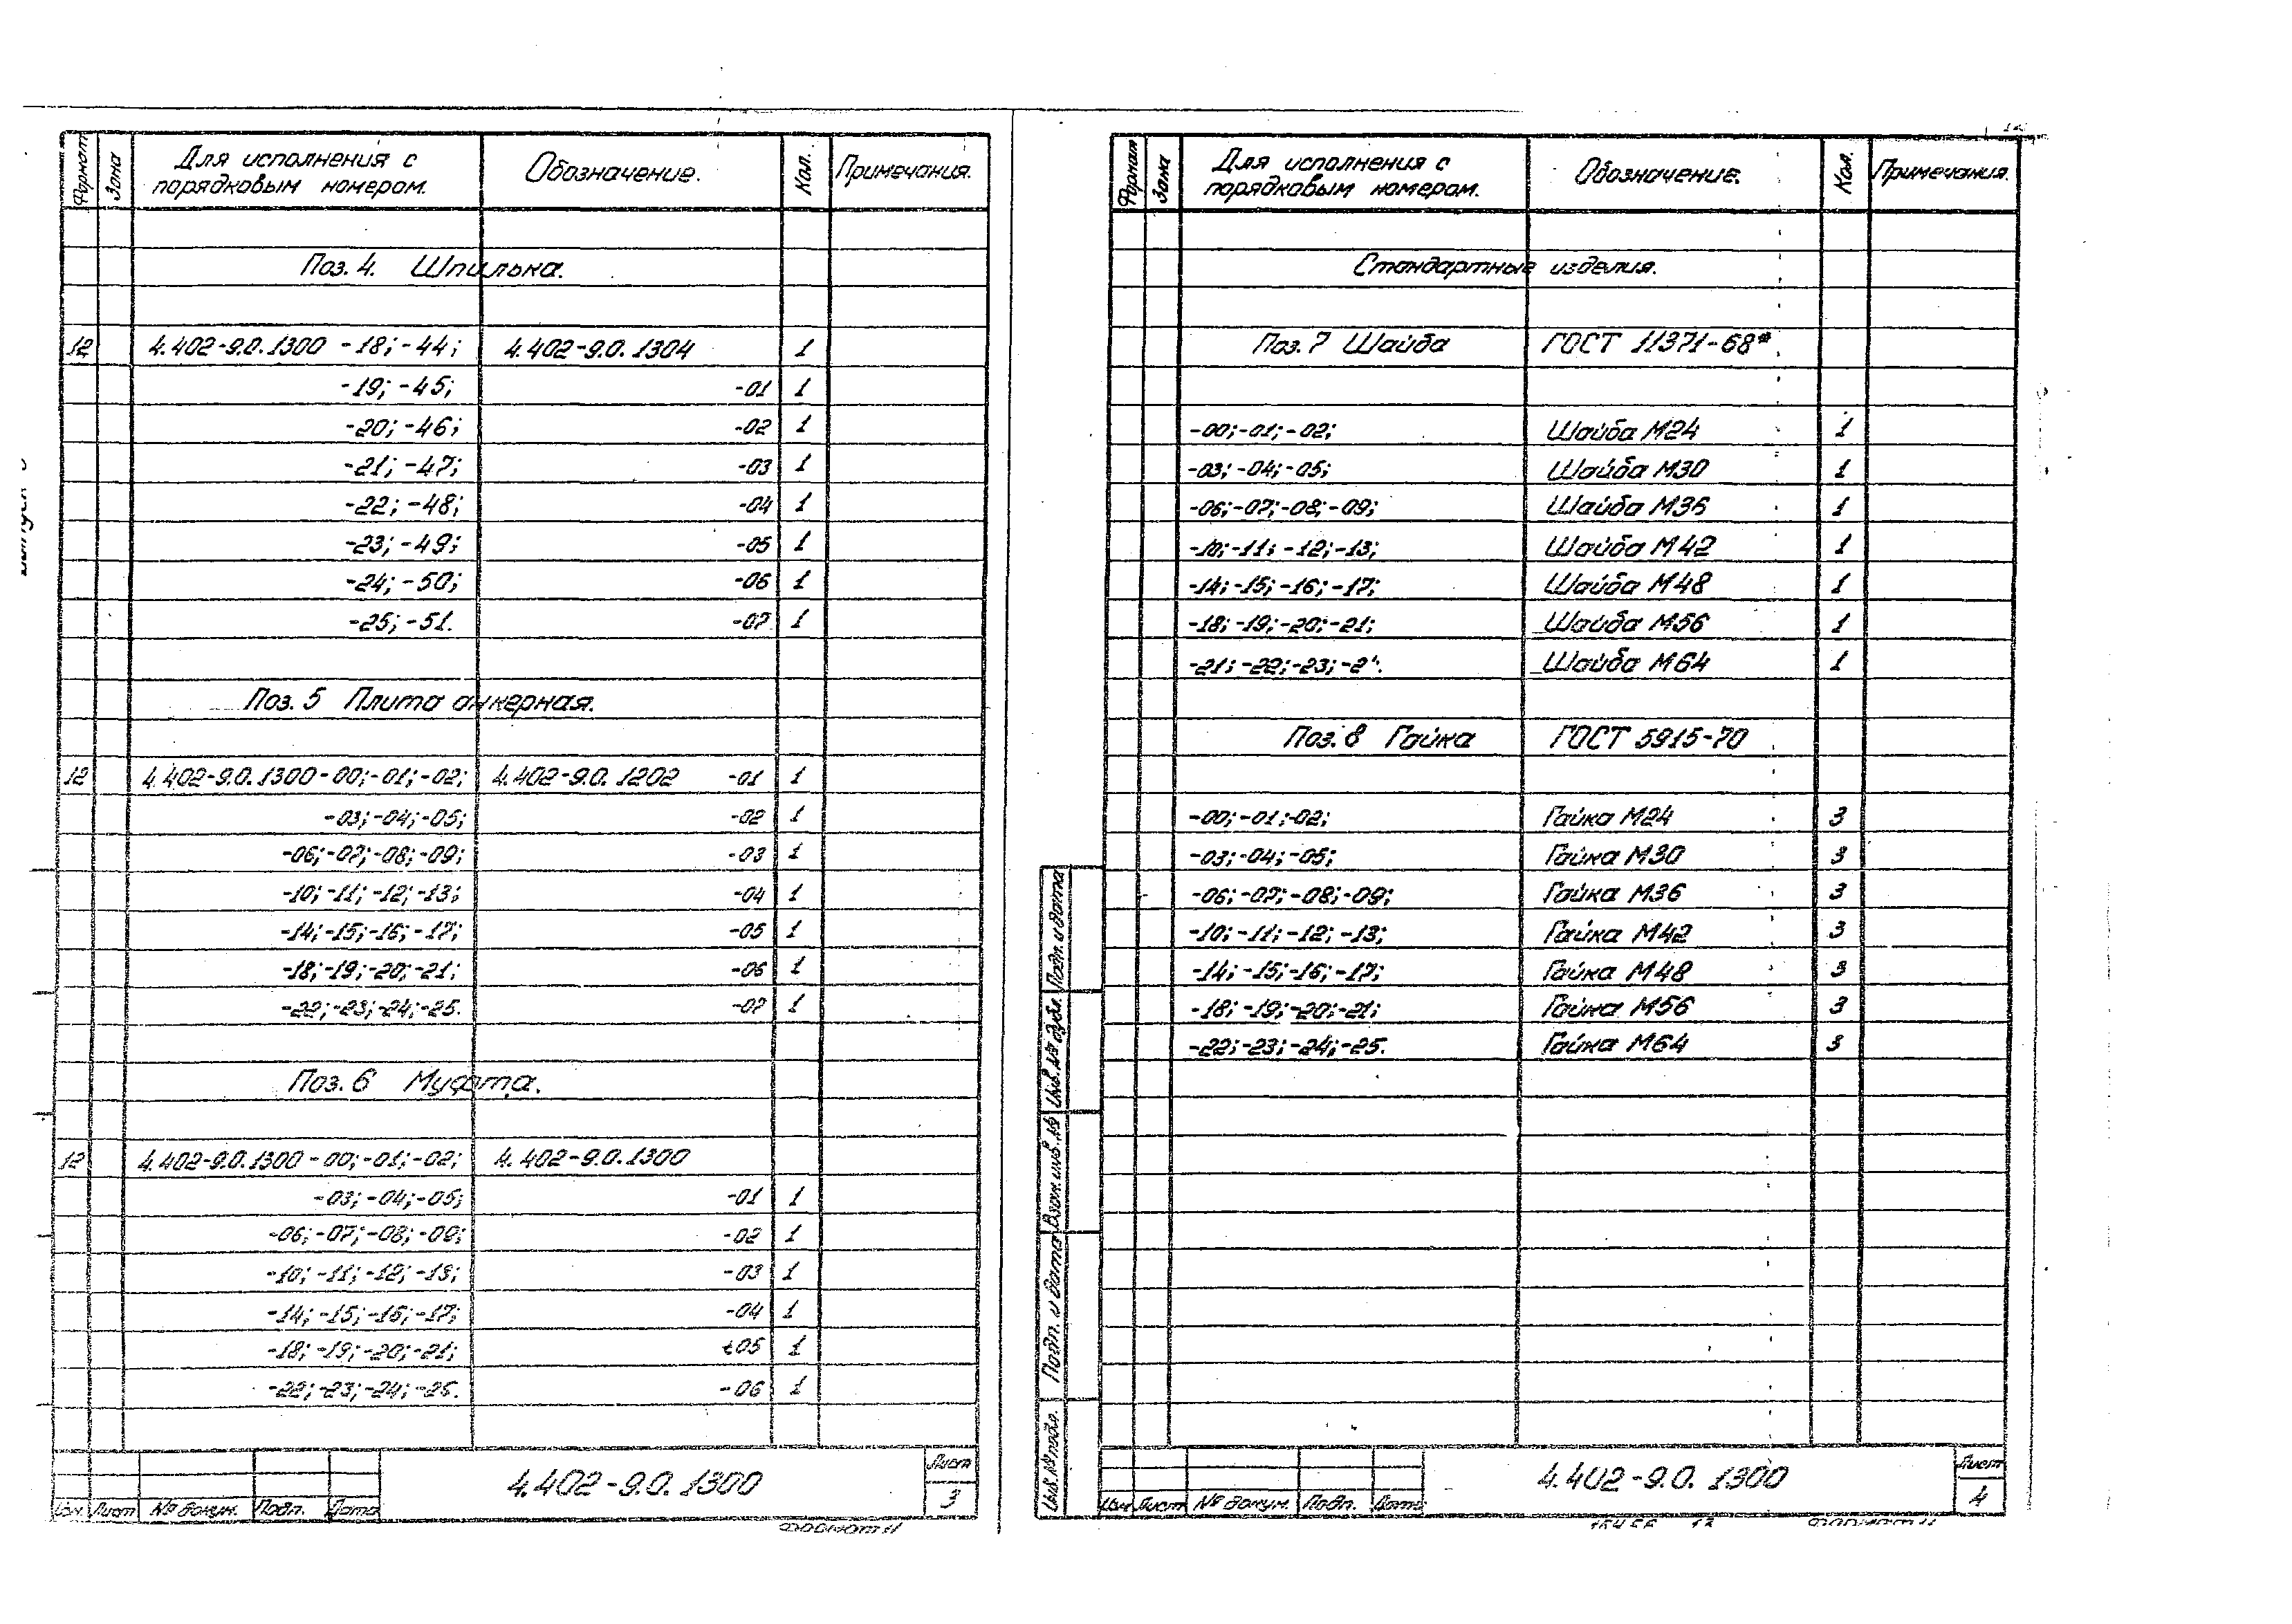 Формат Зона Для исполнения с порядковым номером. Обозначение. Кол. Примечания.
Поз. 4. Шпилька.
12 4.402-9.0.1300 -18; -44; 4.402-9.0.1304 1
-19; -45; -01 1
-20; -46; -02 1
-21; -47; -03 1
-22; -48; -04 1
-23; -49; -05 1
-24; -50; -06 1
-25; -51. -07 1
Поз. 5 Плита анкерная.
12 4.402-9.0.1300-00;-01;-02; 4.402-9.0.1202 -01 1
-03;-04;-05; -02 1
-06;-07;-08;-09; -03 1
-10;-11;-12;-13; -04 1
-14;-15;-16;-17; -05 1
-18;-19;-20;-21; -06 1
-22;-23;-24;-25. -07 1
Поз. 6 Муфта.
12 4.402-9.0.1300-00;-01;-02; 4.402-9.0.1300
-03;-04;-05; -01 1
-06;-07;-08;-09; -02 1
-10;-11;-12;-13; -03 1
-14;-15;-16;-17; -04 1
-18;-19;-20;-21; -05 1
-22;-23;-24;-25. -06 1
4.402-9.0.1300
Лист
3
Изм. Лист № докум. Подп. Дата
Формат 11
Формат Зона Для исполнения с порядковым номером. Обозначение. Кол. Примечания.
Стандартные изделия.
Поз. 7 Шайба ГОСТ 11371-68*
-00;-01;-02; Шайба М24 1
-03;-04;-05; Шайба М30 1
-06;-07;-08;-09; Шайба М36 1
-10;-11;-12;-13; Шайба М42 1
-14;-15;-16;-17; Шайба М48 1
-18;-19;-20;-21; Шайба М56 1
-21;-22;-23; Шайба М64 1
Поз. 8 Гайка ГОСТ 5915-70
-00;-01;-02; Гайка М24 3
-03;-04;-05; Гайка М30 3
-06;-07;-08;-09; Гайка М36 3
-10;-11;-12;-13; Гайка М42 3
-14;-15;-16;-17; Гайка М48 3
-18;-19;-20;-21; Гайка М56 3
-22;-23;-24;-25. Гайка М64 3
Подп. и дата
Инв. № дубл.
Взам. инв. №
Подп. и дата
Инв. № подл.
4.402-9.0.1300
Лист
4
Изм. Лист № докум. Подп. Дата
Формат 11